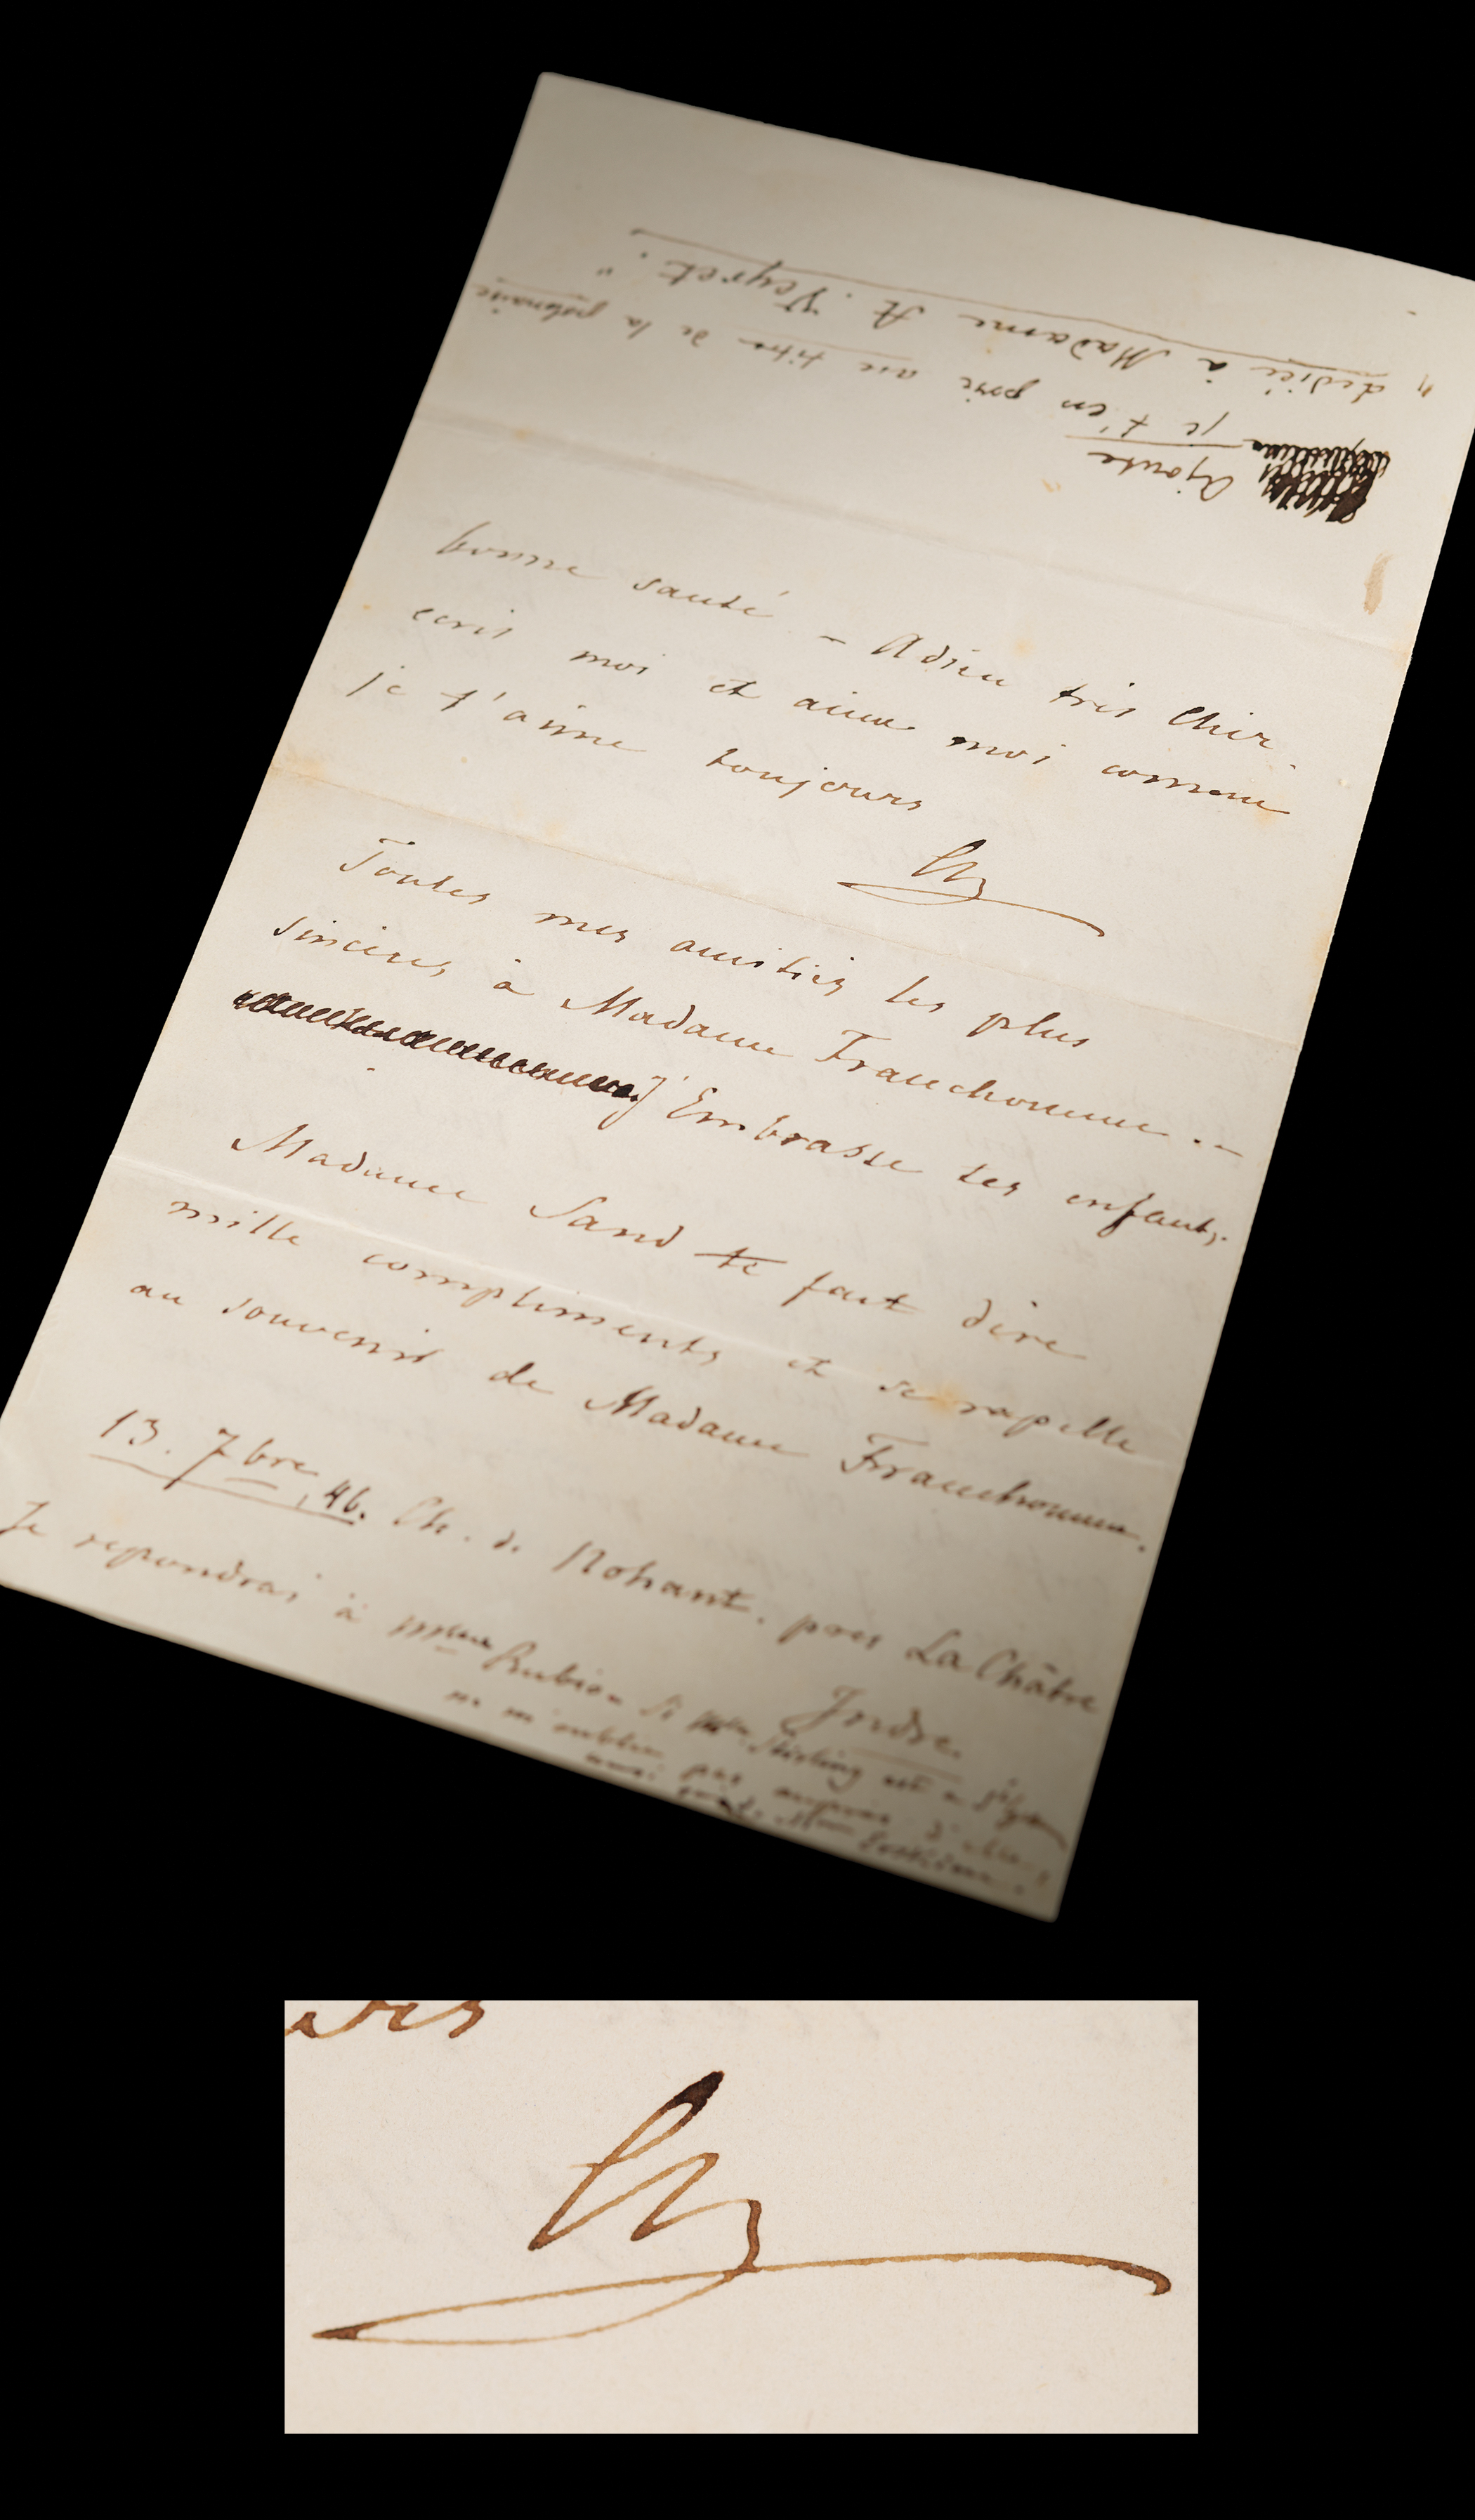 Ajoute
je t'en prie au titre de la polonaise
" dediée à Madame A. Veyret. "
bonne santé - Adieu très cher
ecris moi et aime moi comme
je t'aime toujours
Ch
Toutes mes amitiés les plus
sinceres à Madame Franchomme. -
J'Embrasse tes enfants.
Madame Sand te fait dire
mille compliments et se rapelle
au souvenir de Madame Franchomme.
13. 7bre, 46. Ch. d. Nohant. près La Châtre
Indre.
Je repondrai à Mme Rubio - Si Mlle Stirling est a St
ne m'oublie pas auprès d'elle
ainsi que d. Mme
Ch